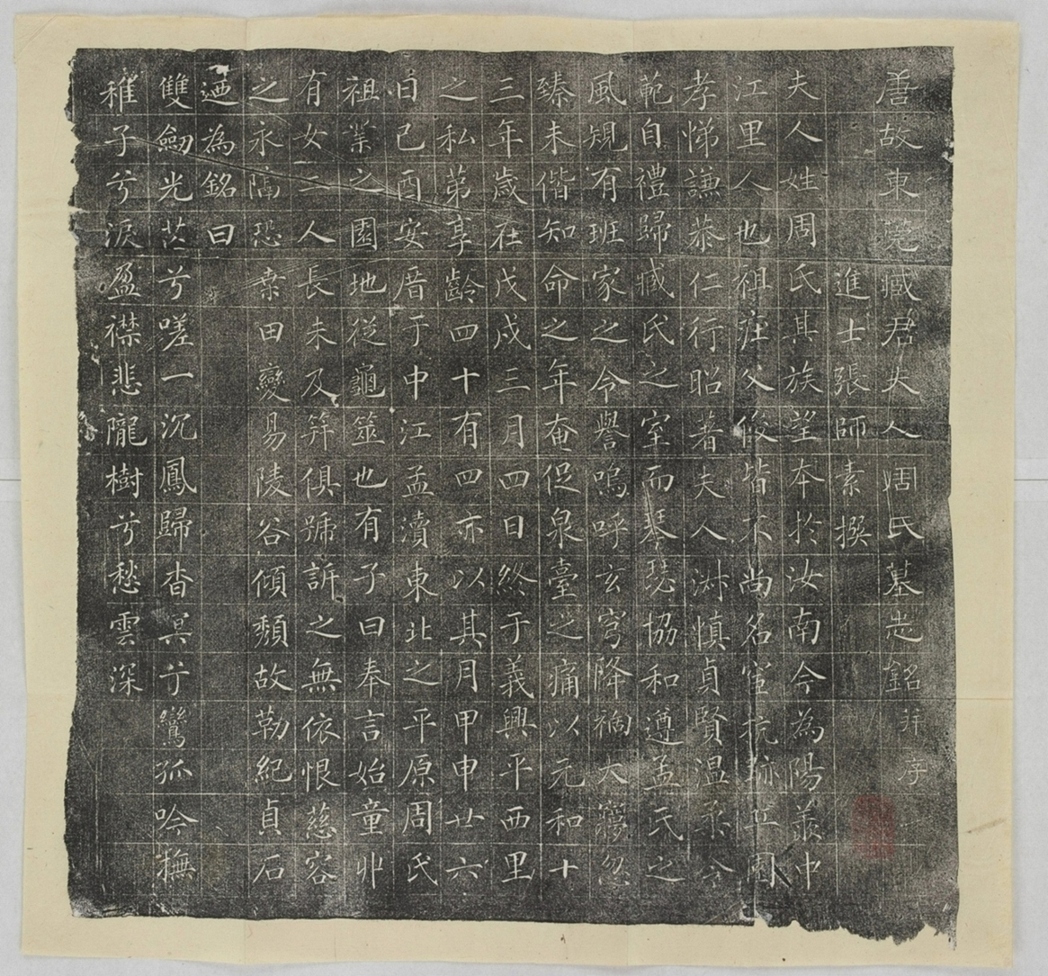 唐故東莞臧君夫人周氏墓志銘并序
進士張師素撰
夫人姓周氏其族望本於汝南今為陽羨中
江里人也祖庄父俊皆不尚名宦抗跡丘園
孝悌謙恭仁行昭著夫人淋慎貞賢溫柔令
範自禮歸臧氏之室而琴瑟協和遵孟氏之
風規有班家之令譽嗚呼玄穹降禍大寢忽
臻未偕知命之年奄促泉臺之痛以元和十
三年歲在戊戌三月四日終于義興平西里
之私第享齡四十有四亦以其月甲申廿六
日己酉安厝于中江孟瀆東北之平原周氏
祖業之園地從龜筮也有子曰奉言始童丱
有女二人長未及笄俱號訴之無依恨慈容
之永隔恐桒田變易陵谷傾頹故勒紀貞石
迺為銘曰
雙劒光茫兮嗟一沉鳳歸杳冥兮鸞孤吟撫
稚子兮淚盈襟悲隴樹兮愁雲深